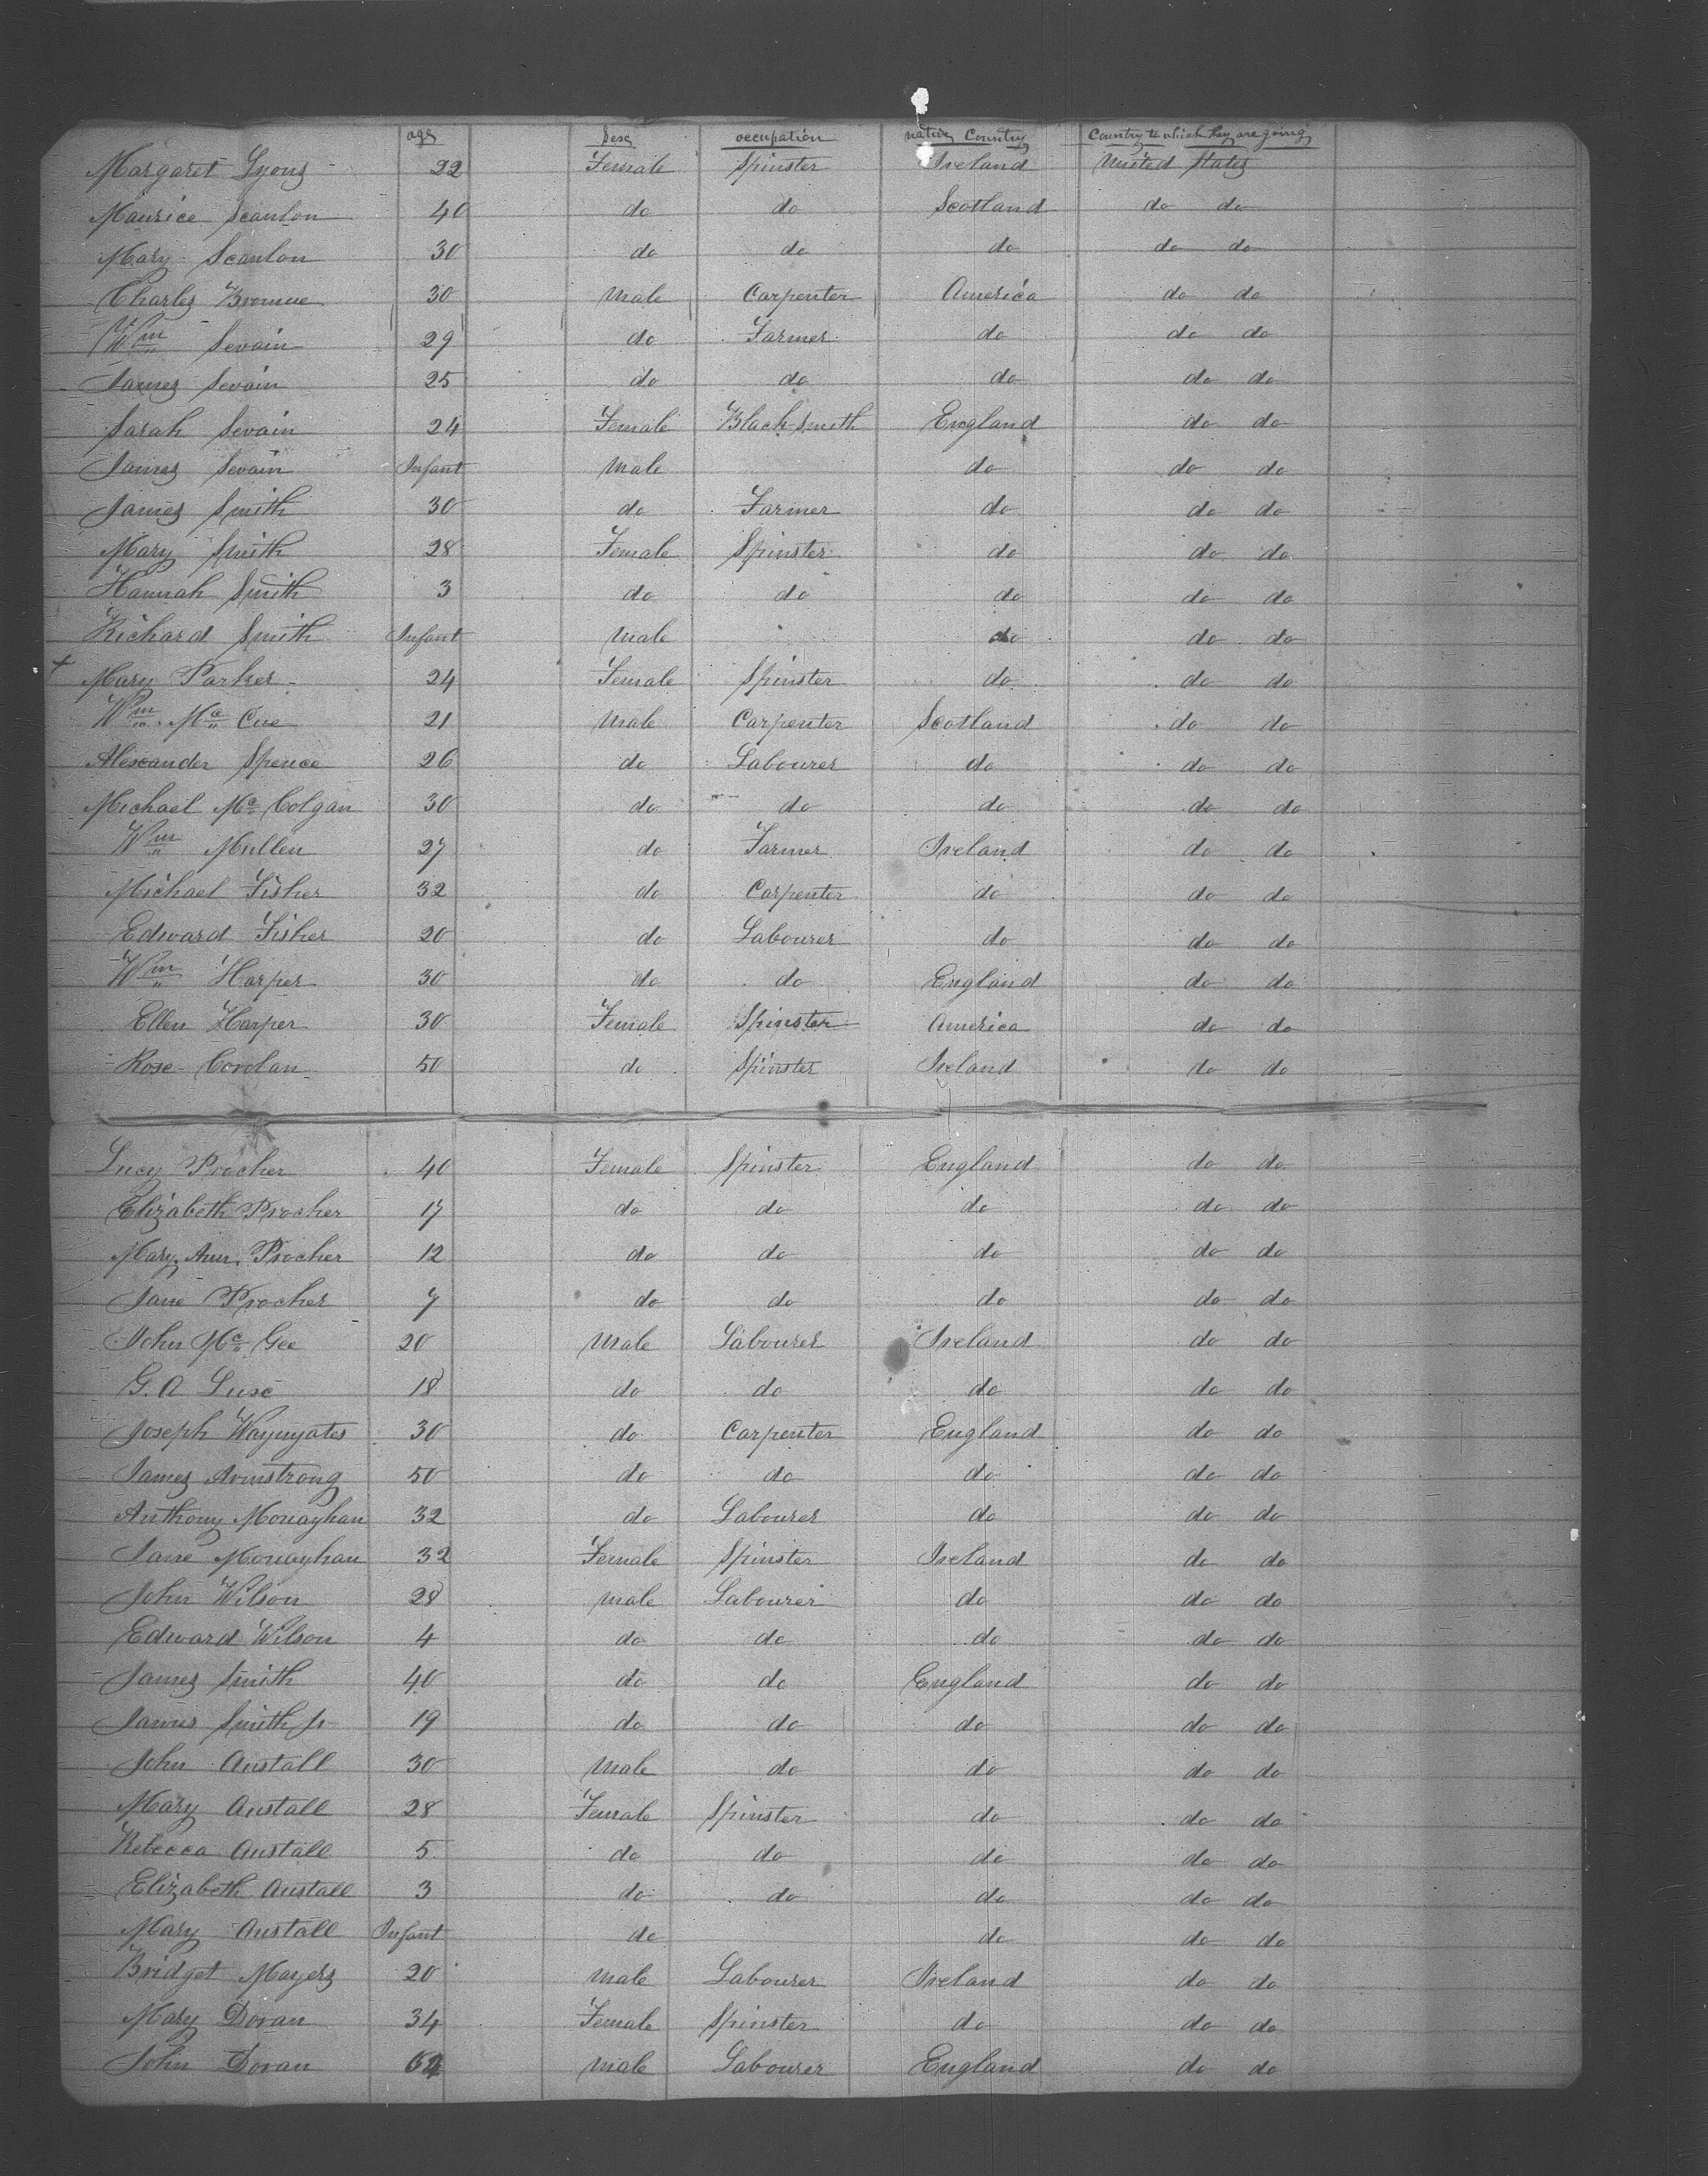 age Sex occupation native Country Country to which they are going
Margaret Lyons 22 Female Spinster Ireland United States
Maurice Scanlon 40 do do Scotland do do
Mary Scanlon 30 do do do do do
Charles 30 Male Carpenter America do do
Wm Swain 29 do Farmer do do do
James Swain 25 do do do do do
Sarah Swain 24 Female Black Smith England do do
James Swain Infant Male do do do
James Smith 30 do Farmer do do do
Mary Smith 28 Female Spinster do do do
Hannah Smith 3 do do do do do
Richard Smith Infant Male do do do
+ Mary Parker 24 Female Spinster do do do
Wm Mc Cue 21 Male Carpenter Scotland do do
Alexander Spence 26 do Labourer do do do
Michael Mc Colgan 30 do do do do do
Wm Mullen 27 do Farmer Ireland do do
Michael Fisher 32 do Carpenter do do do
Edward Fisher 20 do Labourer do do do
Wm Harper 30 do do England do do
Ellen Harper 30 Female Spinster America do do
Rose Corolan 50 do Spinster Ireland do do
Lucy Procher 40 Female Spinster England do do
Elizabeth Procher 17 do do do do do
Mary Ann Procher 12 do do do do do
Jane Procher 7 do do do do do
John Mc Gee 20 Male Labourer Ireland do do
G. A Luse 18 do do do do do
Joseph 30 do Carpenter England do do
James Armstrong 50 do do do do do
Anthony Monayhan 32 do Labourer do do do
Jane Monayhan 32 Female Spinster Ireland do do
John Wilson 28 Male Labourer do do do
Edward Wilson 4 do do do do do
James Smith 40 do do England do do
James Smith Jr 19 do do do do do
John Anstall 30 Male do do do do
Mary Anstall 28 Female Spinster do do do
Rebecca Anstall 5 do do do do do
Elizabeth Anstall 3 do do do do do
Mary Anstall Infant do do do do
Bridget Mayers 20 Male Labourer Ireland do do
Mary Doran 34 Female Spinster do do do
John Doran Male Labourer England do do